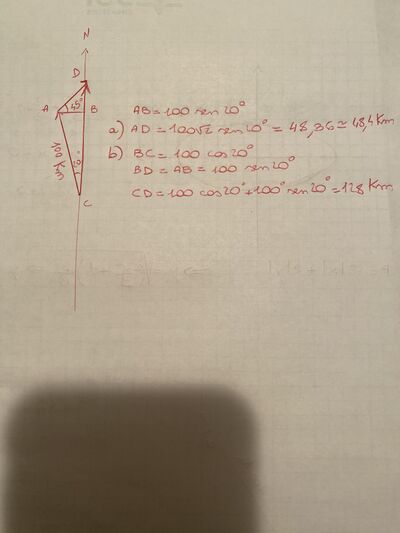 N
D
A
45°
B
100 Km
20°
C
AB = 100 sen 20°
a) AD = 100√2 sen 20° = 48,36 ≃ 48,4 Km
b) BC = 100 cos 20°
BD = AB = 100 sen 20°
CD = 100 cos 20° + 100° sen 20° = 128 Km